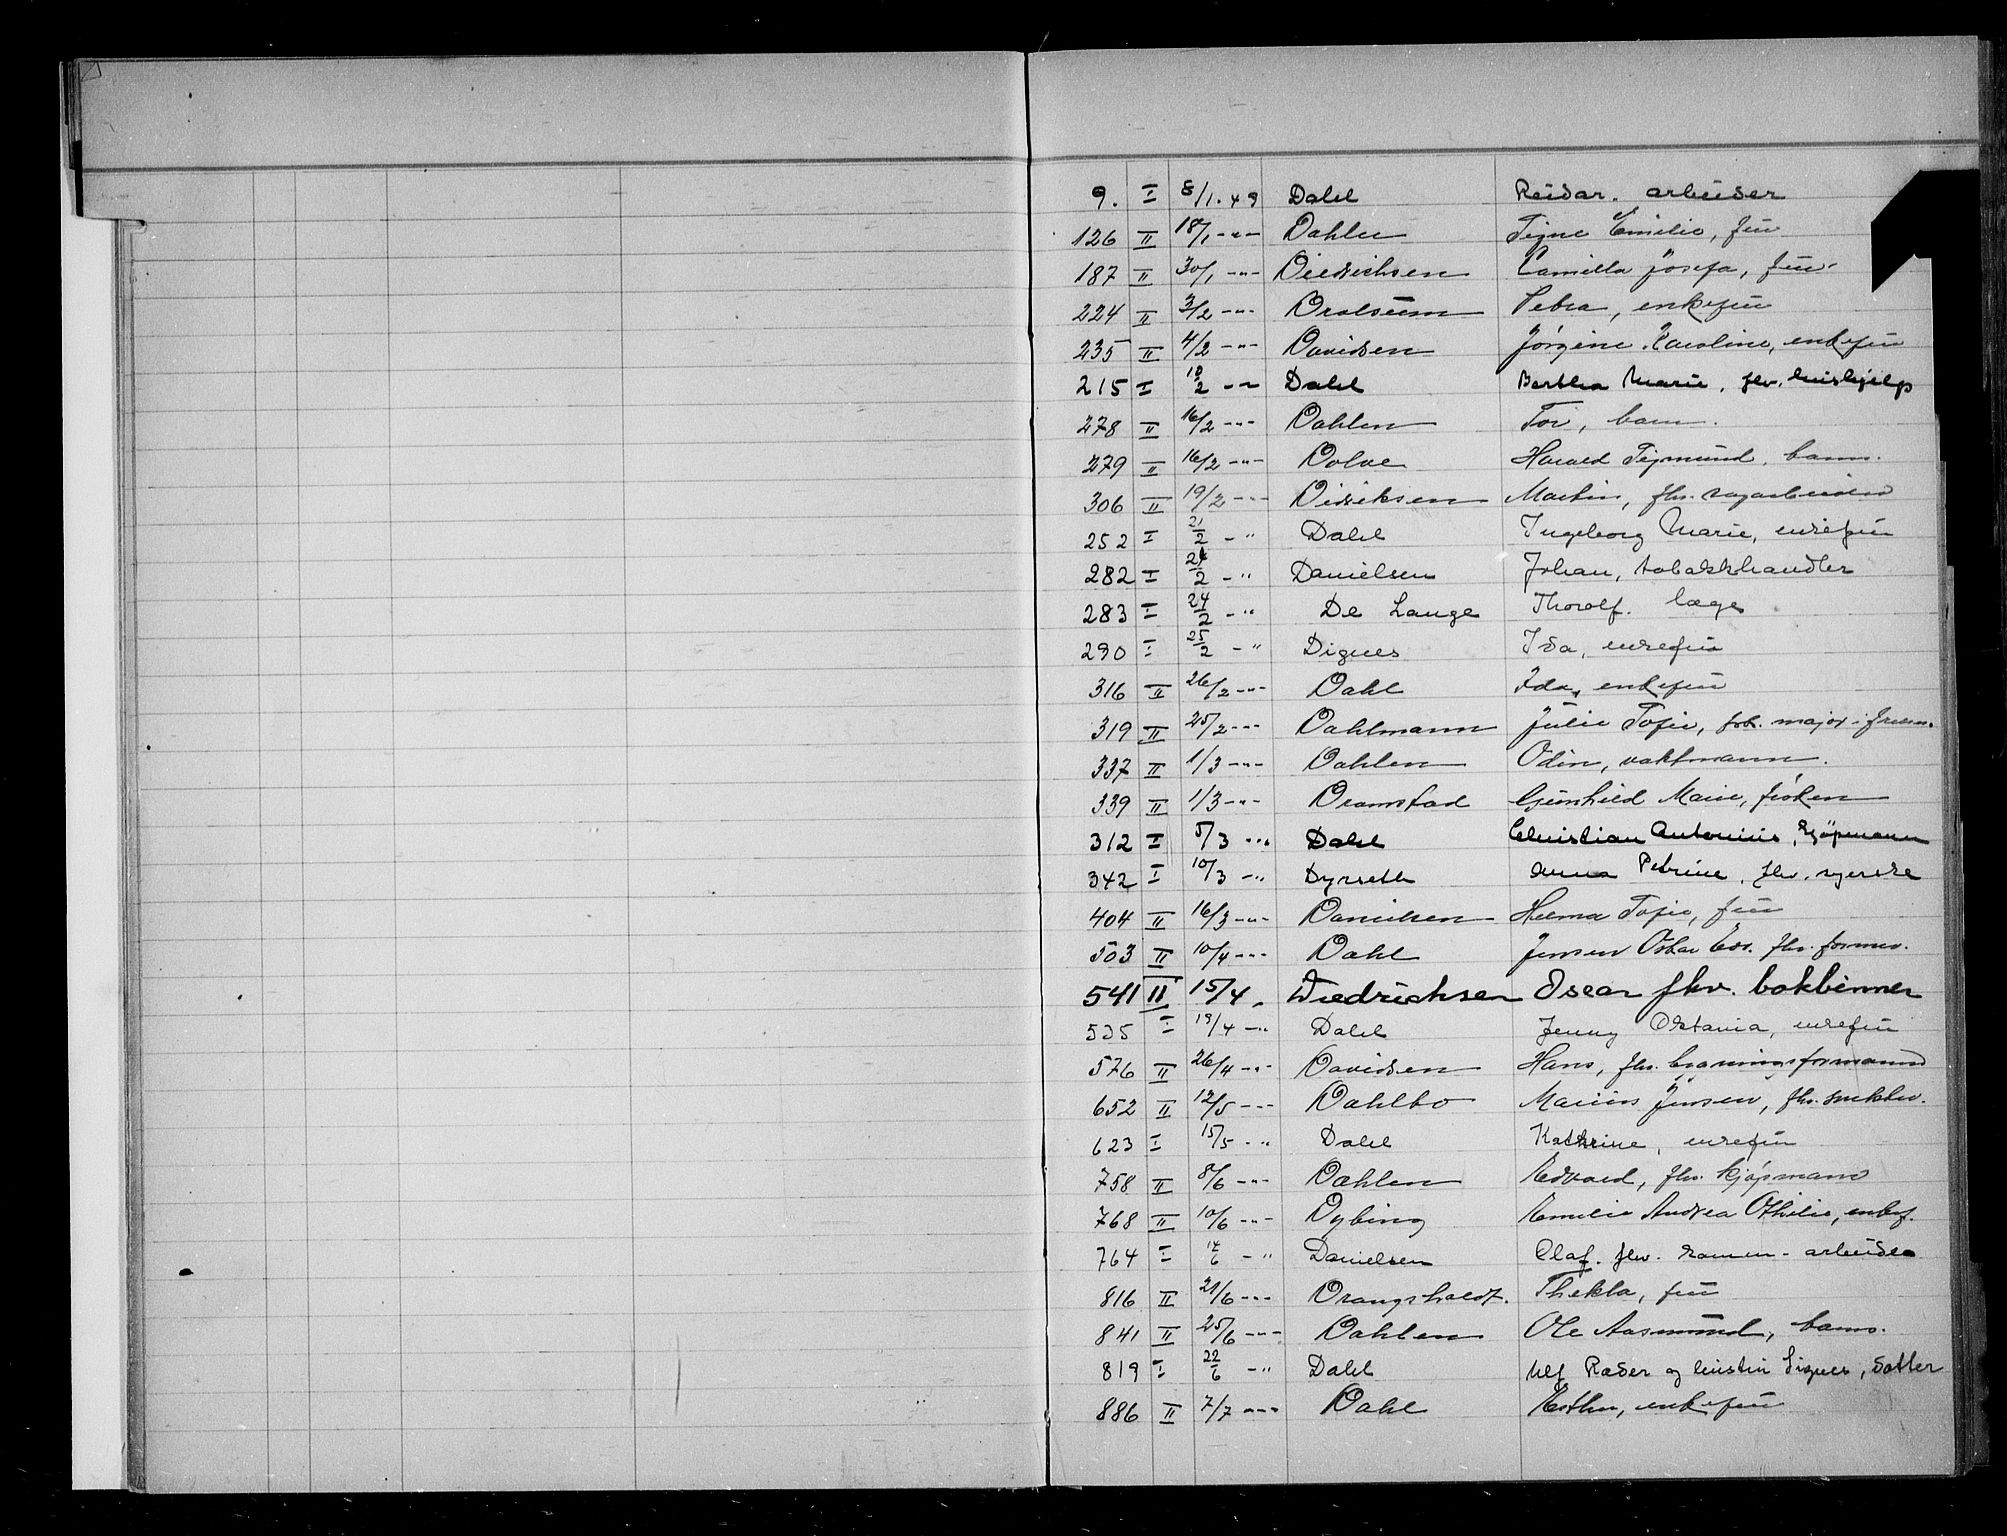 9. I 8/1.49 Dahl Reidar. arbeider
126 II 18/1 -"- Dahlen Signe Emilie, fru
187 II 30/1 -"- Diedrichsen Camilla Josefa, fru.
224 II 3/2 -"- Dralsum Petra, enkefru
235 II 4/2 -"- Davidsen Jørgine Karoline, enkefru
215 I 10/2 -"- Dahl Bertha Marie, fhv. hushjelp
278 II 16/2 -"- Dahlen Tor, barn.
279 II 16/2 -"- Dolve Harald Sigmund, barn.
306 II 19/2 -"- Didriksen Martin, fhv. sagarbeider
252 I 21/2 -" Dahl Ingeborg Marie, enkefru
282 I 24/2 -" Danielsen Johan, tobakkhandler
283 I 24/2 -" De Lange Thorolf. læge
290 I 25/2 -" Dignes Ida, enkefru
316 II 26/2 -"- Dahl Ida, enkefru
319 II 25/2 -"- Dahlmann Julie Sofie, fhv. major i frelsn.
337 II 1/3 -"- Dahlen Odin, vaktmann.
339 II 1/3 -"- Dramstad Gunhild Marie, frøken
312 I 5/3 -"- Dahl Christian Antonius, kjøpmann
342 I 10/3 -" Dyrseth Anna Petrine, fhv. syerske
404 II 16/3 -"- Danielsen Helma Sofie, fru
503 II 10/4 -"- Dahl Jensen Oskar Edv. fhv. former.
541 II 15/4. Diedrichsen Oscar fhv. bokbinner
535 I 19/4 -" Dahl Jenny Oktavia, enkefru
576 II 26/4 -"- Davidsen Hans, fhv. bryningsformann
652 II 12/5 -"- Dahlbo Marius Jensen, fhv. snekker.
623 I 15/5 -" Dahl Kathrine, enkefru
758 II 8/6 -"- Dahlen Edvard, fhv. kjøpmann
768 II 10/6 -"- Dybing Emilie Andrea Othilie, enkef.
764 I 14/6 -" Danielsen Olaf. fhv. komm. arbeider
816 II 21/6 -"- Drangsholdt. Thekla, fru
841 II 25/6 -"- Dahlen Ole Aasmund, barn.
819 I 22/6 -" Dahl Ulf Ræder og Kristin Signes, datter
886 II 7/7 -"- Dahl Esther, enkefru